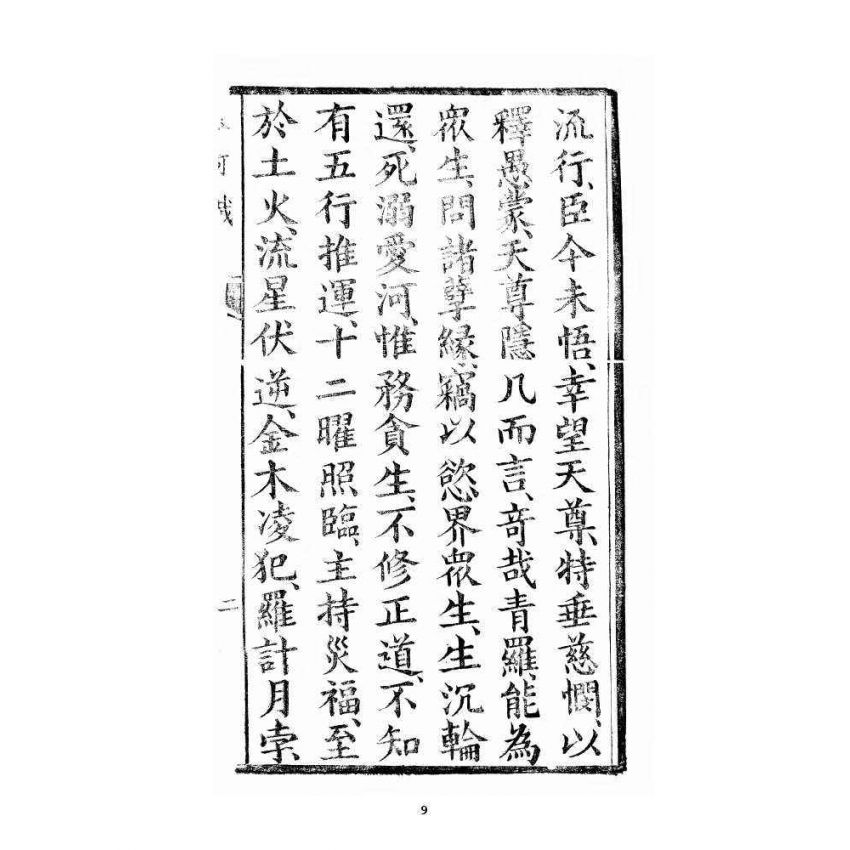 流行、臣今未悟、幸望天尊、特垂慈憫、以
釋愚蒙、天尊隱几而言、奇哉青羅、能為
眾生、問諸孽緣、竊以慾界眾生、生沉輪
還、死溺愛河、惟務貪生、不修正道、不知
有五行推運、十二曜照臨、主持災福、至
於土火、流星伏逆、金木凌犯、羅計月孛、
二
9